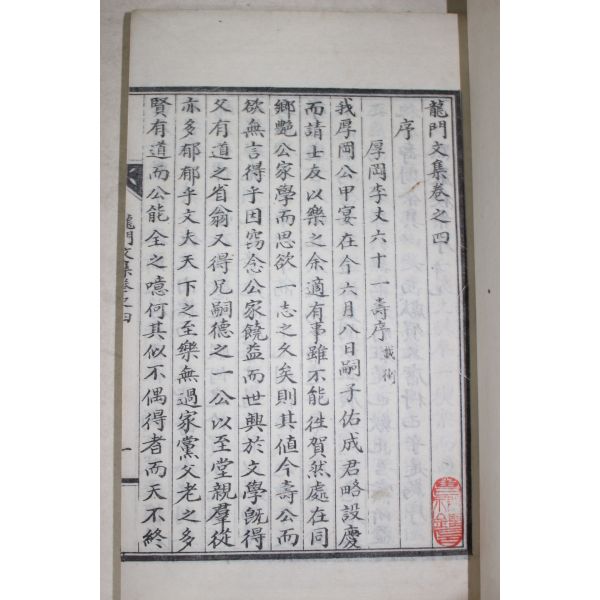 龍門文集卷之四
序
厚岡李丈六十一壽序 載衡
我厚岡公甲宴在今六月八日嗣子佑成君略設慶
而請士友以樂之余適有事雖不能往賀然處在同
鄉艷公家學而思欲一志之久矣則其値今壽公而
欲無言得乎因窃念公家饒益而世興於文學旣得
父有道之省翁又得兄嗣德之一公以至堂親羣從
亦多郁郁乎文夫天下之至樂無過家黨父老之多
賢有道而公能全之噫何其似不偶得者而天不終
龍門文集卷之四
一